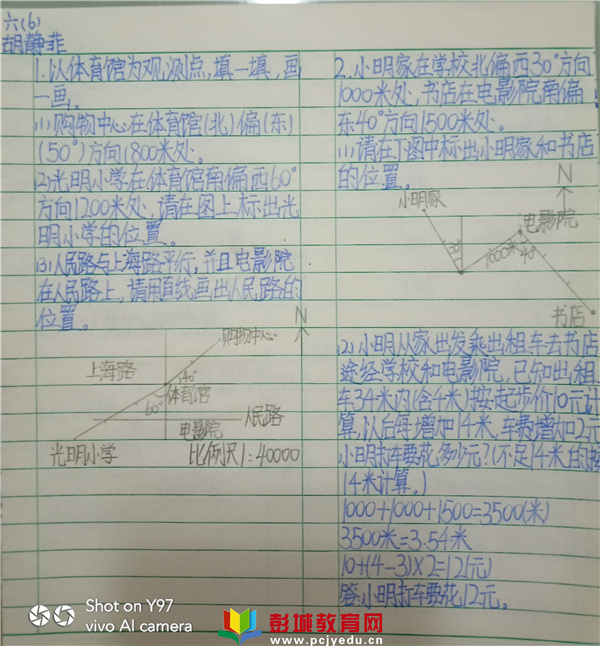 六(6)
胡静菲
1.以体育馆为观测点,填一填,画
一画。
(1)购物中心在体育馆(北)偏(东)
(50°)方向1800米处。
(2)光明小学在体育馆南偏西60°
方向1200米处,请在图上标出光
明小学的位置。
(3)人民路与上海路平行,并且电影院
在人民路上,请用直线画出人民路的
位置。
N
购物中心
上海路
40°
60°
体育馆
人民路
电影院
光明小学
比例尺1:40000
2.小明家在学校北偏西30°方向
1000米处,书店在电影院南偏
东40°方向1500米处。
(1)请在下图中标出小明家和书店
的位置。
N
小明家
电影院
1000米
40°
书店
(2)小明从家出发乘出租车去书店
途经学校和电影院,已知出租
车34米内(含4米)按起步价10元计
算,以后每增加14米,车费增加2元
小明打车要花多少元?(不足14米的按
14米计算。)
1000+1000+1500=3500(米)
3500米=3.54米
10+(4-3)×2=12(元)
答:小明打车要花12元。
Shot on Y97
vivo AI camera
彭城教育网
www.pcjyedu.cn